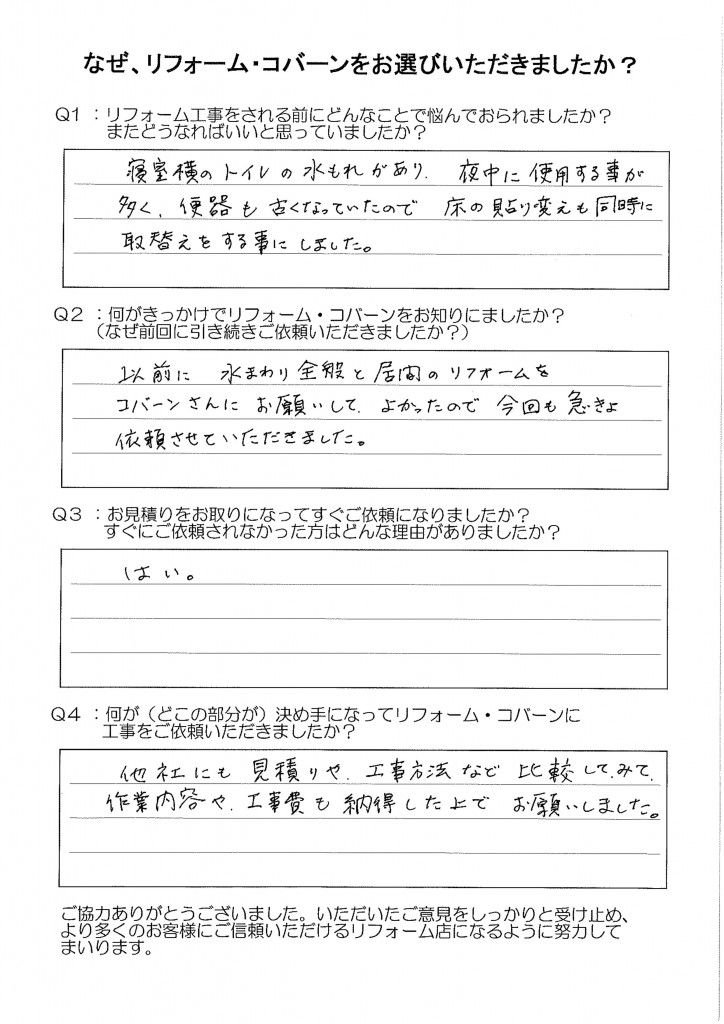 なぜ、リフォーム・コバーンをお選びいただきましたか？
Ｑ１：リフォーム工事をされる前にどんなことで悩んでおられましたか？
またどうなればいいと思っていましたか？
寝室横のトイレの水もれがあり、夜中に使用する事が
多く、便器も古くなっていたので 床の貼り変えも同時に
取替えをする事にしました。
Ｑ２：何がきっかけでリフォーム・コバーンをお知りにましたか？
（なぜ前回に引き続きご依頼いただきましたか？）
以前に 水まわり全般と居間のリフォームを
コバーンさんに お願いして、よかったので 今回も急きょ
依頼させていただきました。
Ｑ３：お見積りをお取りになってすぐご依頼になりましたか？
すぐにご依頼されなかった方はどんな理由がありましたか？
はい。
Ｑ４：何が（どこの部分が）決め手になってリフォーム・コバーンに
工事をご依頼いただきましたか？
他社にも 見積りや、工事方法など 比較して、みて、
作業内容や、工事費も 納得した上で お願いしました。
ご協力ありがとうございました。いただいたご意見をしっかりと受け止め、
より多くのお客様にご信頼いただけるリフォーム店になるように努力して
まいります。